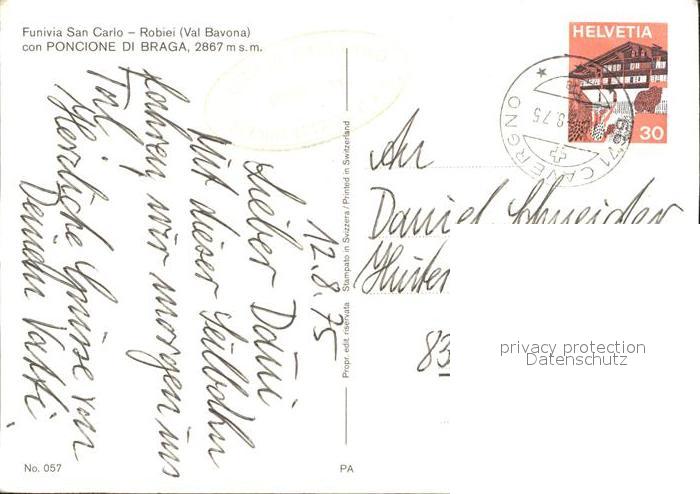 Funivia San Carlo – Robiei (Val Bavona)
con PONCIONE DI BRAGA, 2867 m s.m.
12.8.75
Lieber Dani
Mit dieser Seilbahn
fahren wir morgen ins
Tal!
Herzliche Grüsse von
Deinem Vatti
Propr. edit. riservata Stampato in Svizzera / Printed in Switzerland
HELVETIA
30
CAVERGNO
8.75
An
Daniel Schneider
83
privacy protection
Datenschutz
No. 057
PA